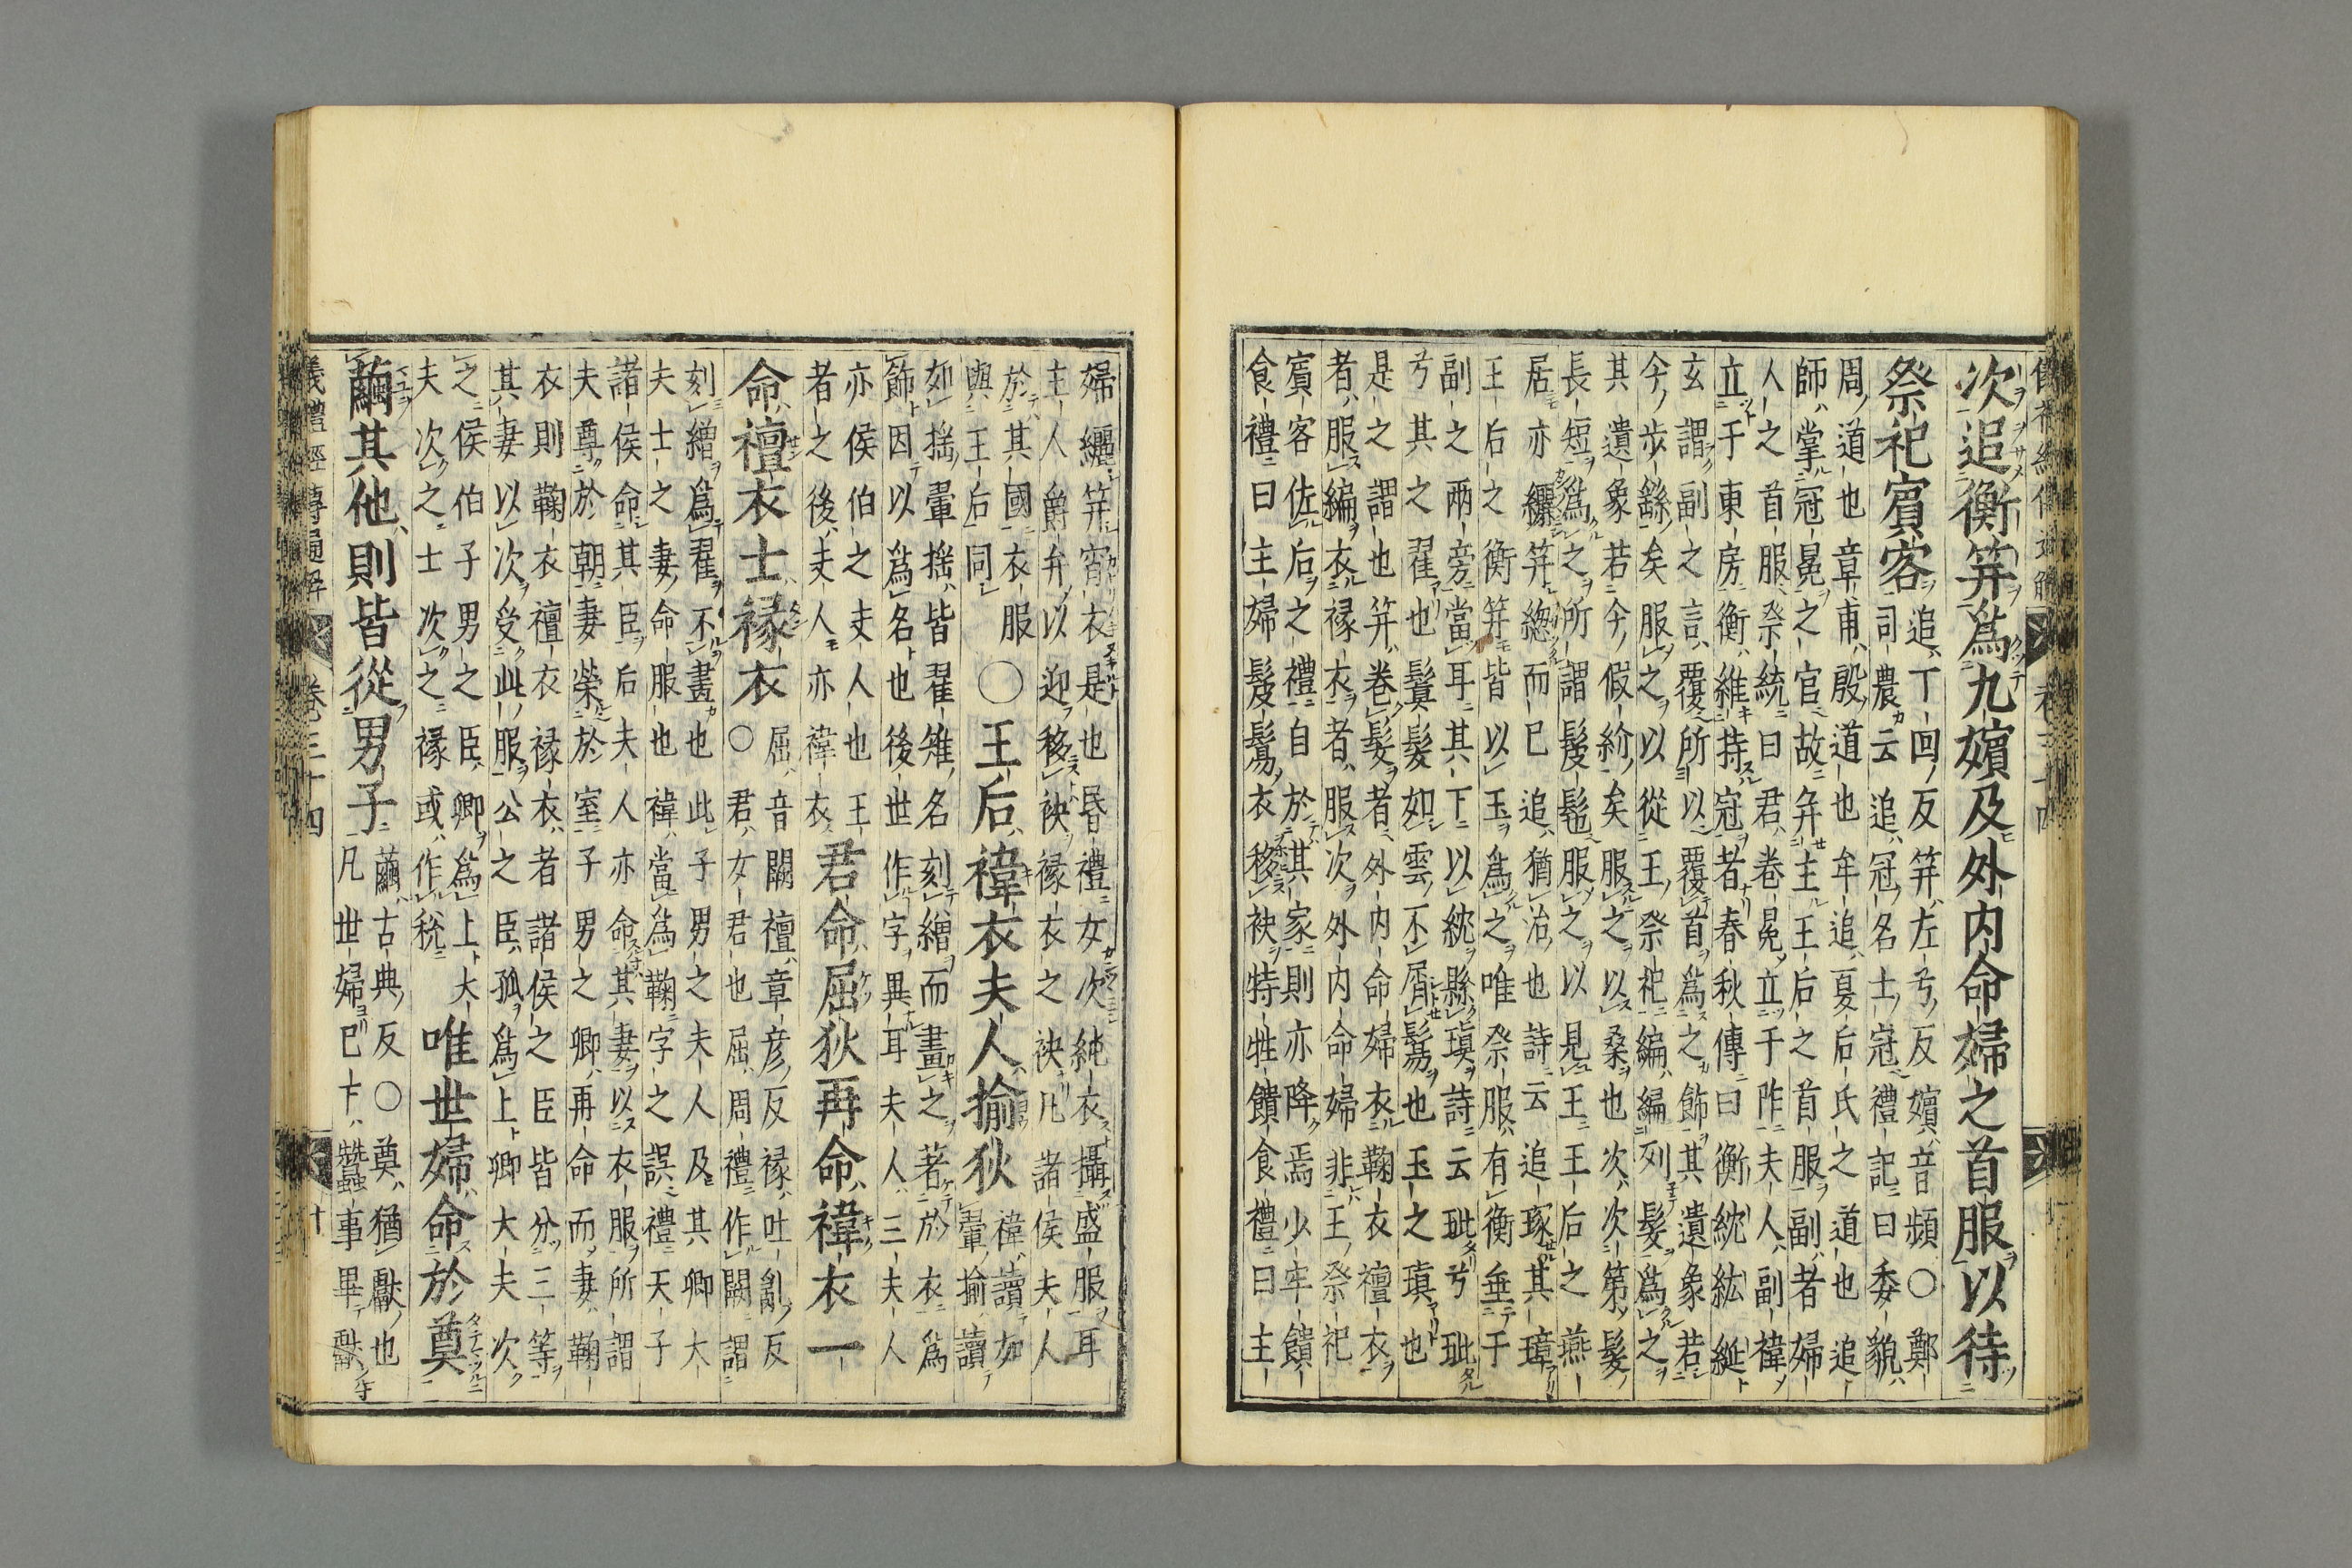 次追衡笄爲九嬪及外内命婦之首服以待
祭祀賓客
追丁回反笄左兮反嬪音頻〇鄭
司農云追冠名士冠禮記曰委貌
周道也章甫殷道也牟追夏后氏之道也追
師掌冠冕之官故弁主王后之首服副者婦
人之首服祭統曰君卷冕立于阼夫人副褘
立于東房衡維持冠者春秋傳曰衡紞紘綖
玄謂副之言覆所以覆首爲之飾其遺象若
今步繇矣服之以從王祭祀編編列髮爲之
其遺象若今假紒矣服之以桑也次次第髮
長短爲之所謂髲髢服之以見王王后之燕
居亦纚笄總而已追猶治也詩云追琢其璋
王后之衡笄皆以玉爲之唯祭服有衡垂于
副之兩旁當耳其下以紞縣瑱詩云玼兮玼
兮其之翟也鬒髮如雲不屑鬄也玉之瑱也
是之謂也笄卷髮者外内命婦衣鞠衣襢衣
者服編衣褖衣者服次外内命婦非王祭祀
賓客佐后之禮自於其家則亦降焉少牢饋
食禮曰主婦髲鬄衣移袂特牲饋食禮曰主
婦纚笄宵衣是也昏禮女次純衣攝盛服耳
主人爵弁以迎移袂褖衣之袂凡諸侯夫人
於其國衣服
與王后同
〇王后褘衣夫人揄狄
褘讀如
翬揄讀
如搖翬搖皆翟雉名刻繒而畫之著於衣爲
飾因以爲名也後世作字異耳夫人三夫人
亦侯伯之夫人也王
者之後夫人亦褘衣
君命屈狄再命褘衣一
命襢衣士褖衣
屈音闕襢章彦反褖吐亂反
〇君女君也屈周禮作闕謂
刻繒爲翟不畫也此子男之夫人及其卿大
夫士之妻命服也褘當爲鞠字之誤禮天子
諸侯命其臣后夫人亦命其妻以衣服所謂
夫尊於朝妻榮於室子男之卿再命而妻鞠
衣則鞠衣襢衣褖衣者諸侯之臣皆分三等
其妻以次受此服公之臣孤爲上卿大夫次
之侯伯子男之臣卿爲上大
夫次之士次之褖或作稅
唯世婦命於奠
繭其他則皆從男子
繭古典反〇奠猶獻也
凡世婦已下蠶事畢獻
儀禮經傳通解　卷三十四　十